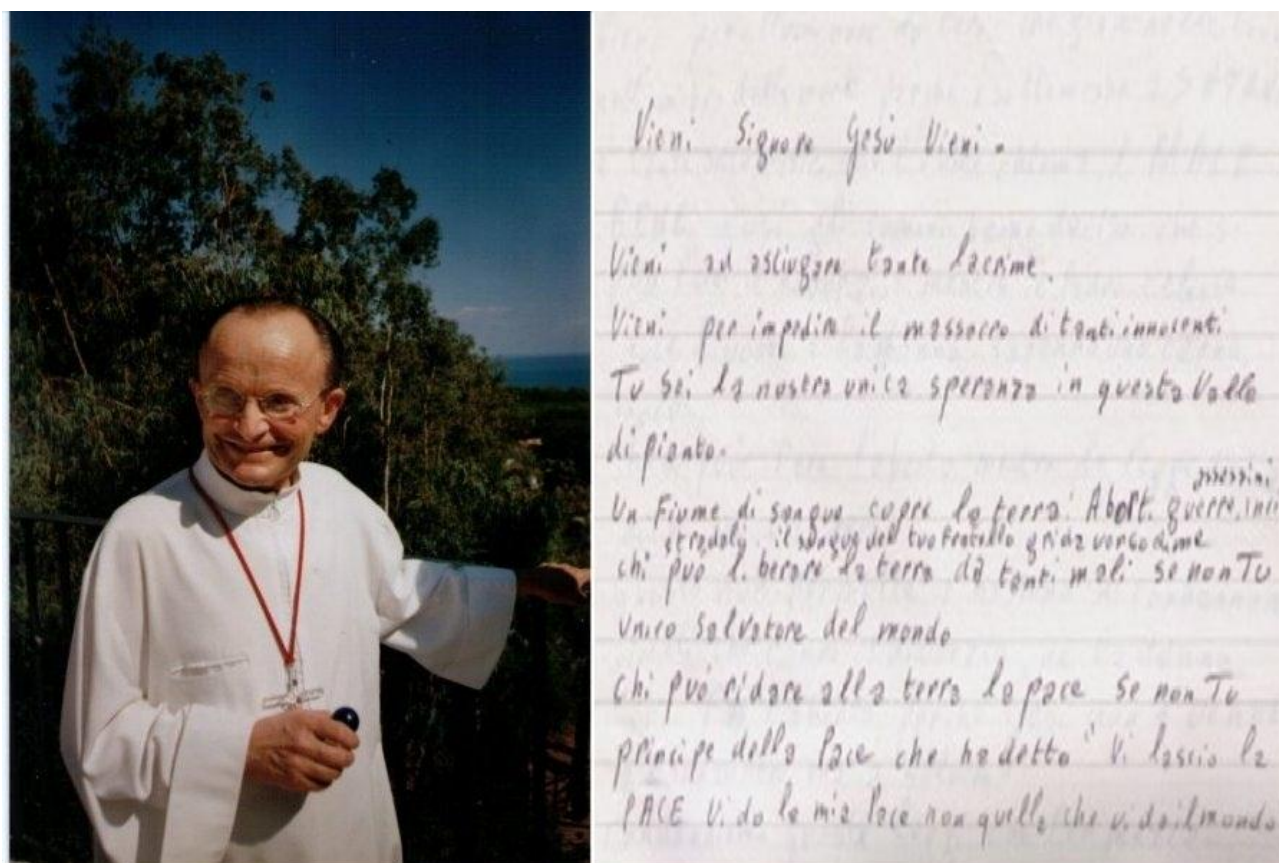 Vieni Signore Gesù Vieni.
Vieni ad asciugare tante lacrime.
Vieni per impedire il massacro di tanti innocenti
Tu sei la nostra unica speranza in questa Valle
di pianto.
assassini
Un Fiume di sangue copre la terra: Abort. guerre,
il sangue del tuo fratello grida verso di me
chi può liberare la terra da tanti mali se non Tu
unico Salvatore del mondo
chi può ridare alla terra la pace se non Tu
principe della Pace che ha detto " Vi lascio la
PACE Vi do la mia Pace non quella che vi da il mondo